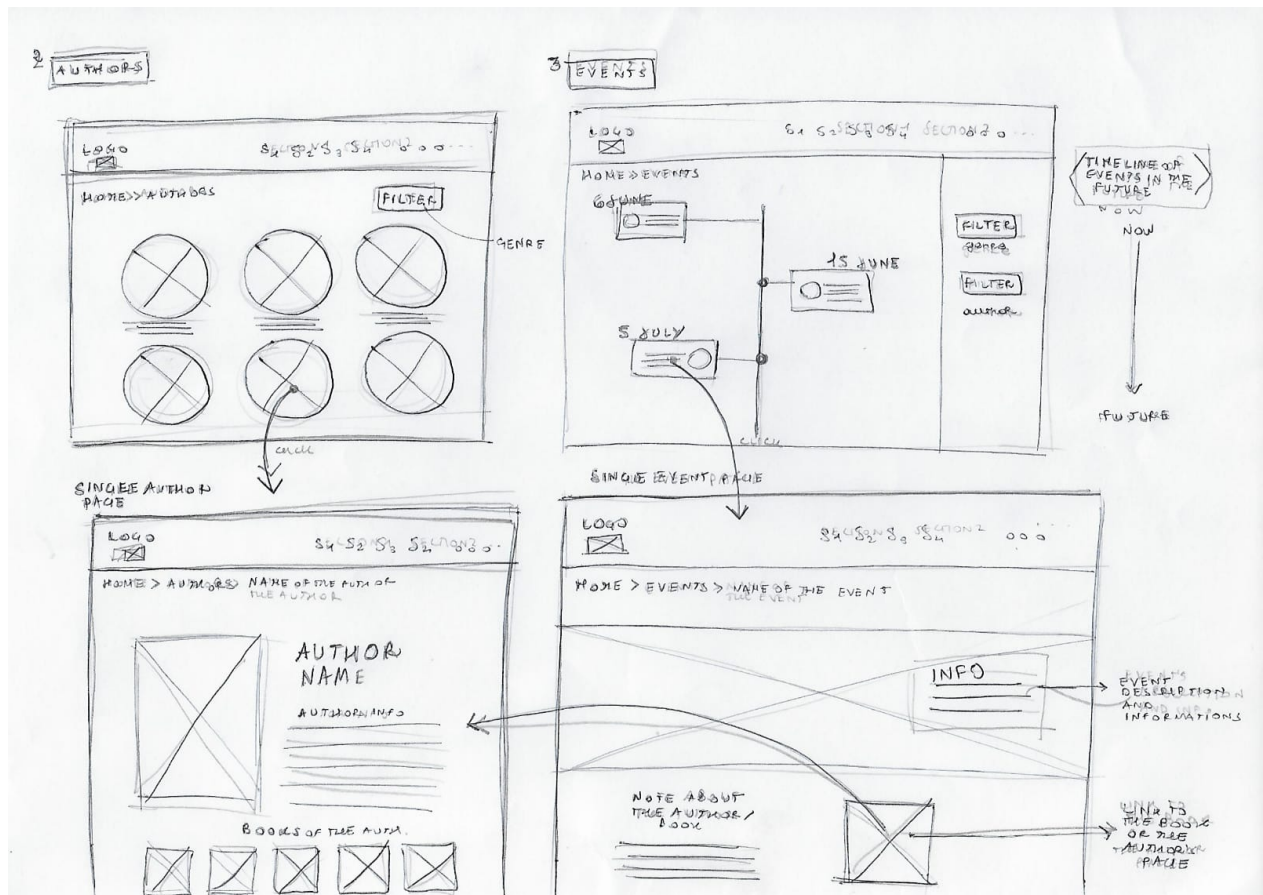 2 AUTHORS
LOGO
HOME >> AUTHORS
FILTER
GENRE
CLICK
SINGLE AUTHOR
PAGE
LOGO
HOME > AUTHORS > NAME OF THE AUTHOR
AUTHOR
NAME
AUTHOR INFO
BOOKS OF THE AUTH.
3 EVENTS
LOGO
HOME >> EVENTS
6 JUNE
15 JUNE
5 JULY
FILTER
genre
FILTER
author
CLICK
TIMELINE OF
EVENTS IN THE
FUTURE
NOW
FUTURE
SINGLE EVENT PAGE
LOGO
HOME > EVENTS > NAME OF THE EVENT
INFO
EVENT
DESCRIPTION
AND
INFORMATIONS
NOTE ABOUT
THE AUTHOR/
BOOK
LINK TO
THE BOOK
OR THE
AUTHOR'S
PAGE